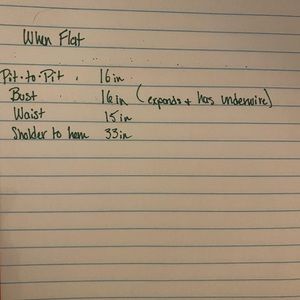 When Flat
Pit-to-Pit. 16in
Bust 16in (expands + has underwire)
Waist 15in
Sholder to hem 33in